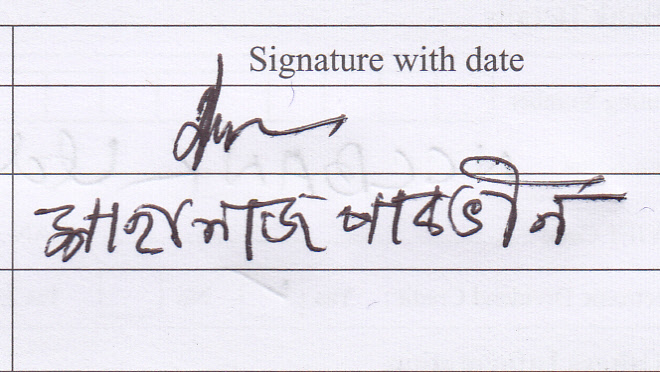 Signature with date
শাহানাজ পারভীন